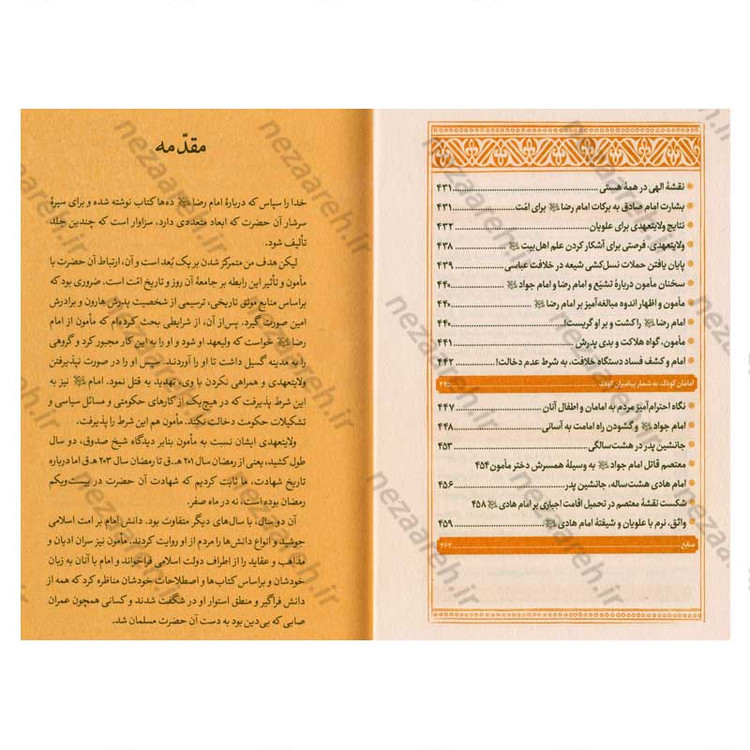 نقشهٔ الهی در همهٔ هستی ..... ۴۳۱
بشارت امام صادق به برکات امام رضا ﷺ برای امّت ..... ۴۳۱
نتایج ولایتعهدی برای علویان ..... ۴۳۲
ولایتعهدی، فرصتی برای آشکار کردن علم اهل‌بیت ..... ۴۳۸
پایان یافتن حملات نسل‌کشی شیعه در خلافت عباسی ..... ۴۳۹
سخنان مأمون دربارهٔ تشیّع و امام رضا و امام جواد ..... ۴۴۰
مأمون و اظهار اندوه مبالغه‌آمیز بر امام رضا ..... ۴۴۰
امام رضا را کشت و بر او گریست! ..... ۴۴۰
مأمون، گواه هلاکت و بدی پدرش ..... ۴۴۱
امام و کشف فساد دستگاه خلافت، به شرط عدم دخالت! ..... ۴۴۲
امامان کودک، به شمار پیامبران کودک
نگاه احترام‌آمیز مردم به امامان و اطفال آنان ..... ۴۴۷
امام جواد و گشودن راه امامت به آسانی ..... ۴۴۸
جانشین پدر در هشت‌سالگی ..... ۴۵۳
معتصم قاتل امام جواد به وسیلهٔ همسرش دختر مأمون ۴۵۴
امام هادی هشت‌ساله، جانشین پدر ..... ۴۵۶
شکست نقشهٔ معتصم در تحمیل اقامت اجباری بر امام هادی ۴۵۸
واثق، نرم با علویان و شیفتهٔ امام هادی ..... ۴۵۹
منابع ..... ۴۶۳
مقدّمه
خدا را سپاس که دربارهٔ امام رضا ده‌ها کتاب نوشته شده و برای سیرهٔ
سرشار آن حضرت که ابعاد متعددی دارد، سزاوار است که چندین جلد
تألیف شود.
لیکن هدف من متمرکز شدن بر یک بُعد است و آن، ارتباط آن حضرت با
مأمون و تأثیر این رابطه بر جامعهٔ آن روز و تاریخ امّت است. ضروری بود که
براساس منابع موثق تاریخی، ترسیمی از شخصیت پدرش هارون و برادرش
امین صورت گیرد. پس از آن، از شرایطی بحث کرده‌ام که مأمون از امام
رضا خواست که ولیعهد او شود و او را به این کار مجبور کرد و گروهی
را به مدینه گسیل داشت تا او را آوردند. سپس او را در صورت نپذیرفتن
ولایتعهدی و همراهی نکردن با وی، تهدید به قتل نمود. امام نیز به
این شرط پذیرفت که در هیچ‌یک از کارهای حکومتی و مسائل سیاسی و
تشکیلات حکومت دخالت نکند. مأمون هم این شرط را پذیرفت.
ولایتعهدی ایشان نسبت به مأمون بنابر دیدگاه شیخ صدوق، دو سال
طول کشید، یعنی از رمضان سال ۲۰۱ هـ.ق تا رمضان سال ۲۰۳ هـ.ق اما درباره
تاریخ شهادت، ما ثابت کردیم که شهادت آن حضرت در بیست‌ویکم
رمضان بوده است، نه در ماه صفر.
آن دو سال، با سال‌های دیگر متفاوت بود. دانش امام بر امت اسلامی
جوشید و انواع دانش‌ها را مردم از او روایت کردند. مأمون نیز سران ادیان و
مذاهب و عقاید را از اطراف دولت اسلامی فراخواند و امام با آنان به زبان
خودشان و براساس کتاب‌ها و اصطلاحات خودشان مناظره کرد که همه از
دانش فراگیر و منطق استوار او در شگفت شدند و کسانی همچون عمران
صابی که بی‌دین بود به دست آن حضرت مسلمان شد.
nezaareh.ir